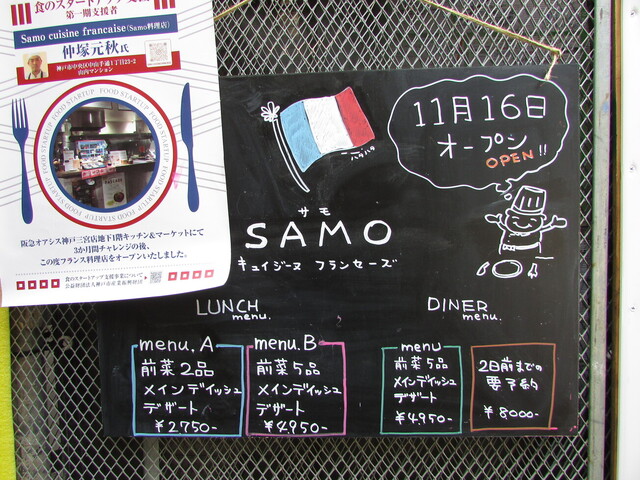 食のスタートアップ支援
第一期支援者
Samo cuisine francaise(Samo料理店)
仲塚元秋氏
神戸市中央区中山手通1丁目23-2
山内マンション
FOOD STARTUP FOOD STARTUP
FOOD STARTUP
阪急オアシス神戸三宮店地下1階キッチン&マーケットにて
3か月間チャレンジの後、
この度フランス料理店をオープンいたしました。
食のスタートアップ支援事業について
公益財団法人神戸市産業振興財団
パタパタ
11月16日
オープン
OPEN!!
サモ
SAMO
キュイジーヌ フランセーズ
LUNCH
menu.
menu.A
前菜2品
メインディッシュ
デザート
¥2.750-
menu.B
前菜5品
メインディッシュ
デザート
¥4.950-
DINER
menu.
menu
前菜5品
メインディッシュ
デザート
¥4.950-
2日前までの
要予約
¥8000-